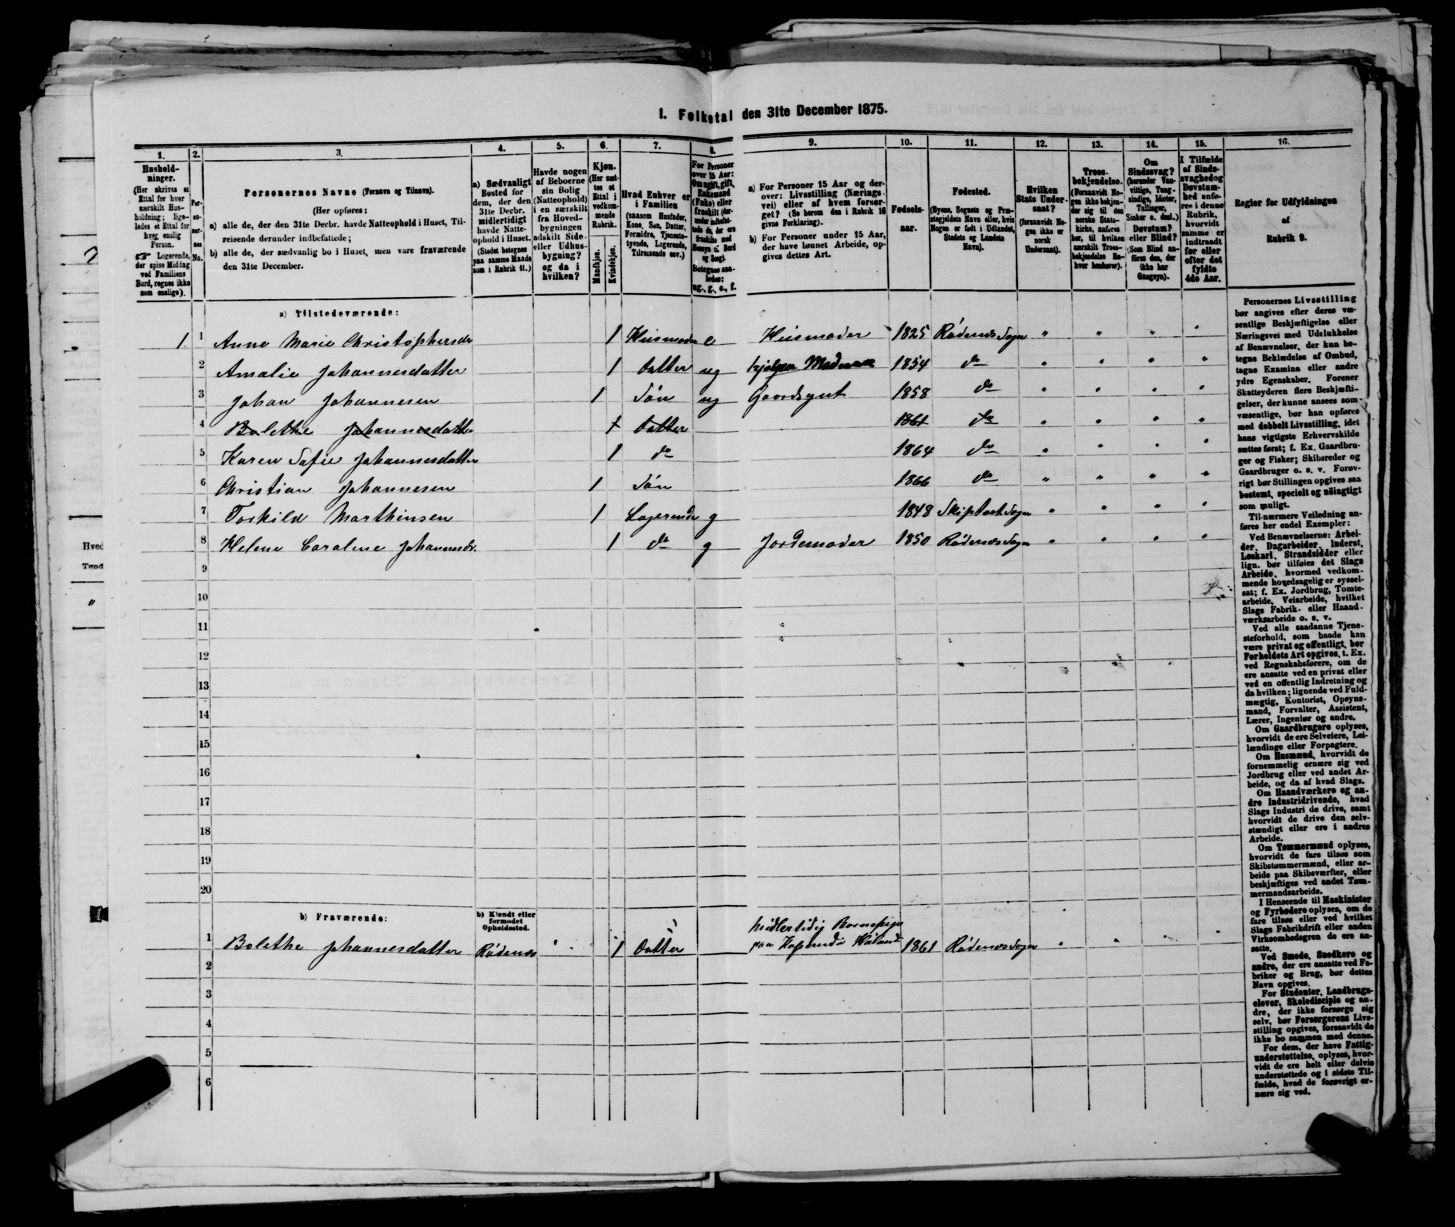 1. Folketal den 31te December 1875.
1. 2. 3. 4. 5. 6. 7. 8. 9. 10. 11. 12. 13. 14. 15. 16.
Hushold-
ninger.
(Her skrives et
Ettal for hver
særskilt Hus-
holdning; lige-
ledes et Ettal for
hver enslig
Person.
☞ Logerende,
der spise Middag
ved Familiens
Bord, regnes ikke
som enslige).
Per-
so-
ner-
nes
No.
Personernes Navne (Fornavn og Tilnavn).
(Her opføres:
a) alle de, der den 31te Decbr. havde Natteophold i Huset, Til-
reisende derunder indbefattede;
b) alle de, der sædvanlig bo i Huset, men vare fraværende
den 31te December.
a) Sædvanligt
Bosted for
dem, der den
31te Decbr.
midlertidigt
havde Natte-
ophold i Huset.
(Stedet betegnes
paa samme Maade
som i Rubrik 11.)
Havde nogen
af Beboerne
sin Bolig
(Natteophold)
i en særskilt
fra Hoved-
bygningen
adskilt Side-
eller Udhus-
bygning?
og da i
hvilken?
Kjøn.
(Her sæt-
tes et
Ettal i
vedkom-
mende
Rubrik.
Mandkjøn.
Kvindekjøn.
Hvad Enhver er
i Familien
(saasom Husfader,
Kone, Søn, Datter,
Forældre, Tjeneste-
tyende, Logerende,
Tilreisende osv.)
For Personer
over 15 Aar:
Om ugift, gift,
Enkemand
(Enke) eller
fraskilt
Betegnes saa-
ledes:
ug., g., e., f.
a) For Personer 15 Aar og der-
over: Livsstilling (Nærings-
vei) eller af hvem forsør-
get? (Se herom den i Rubrik 16
givne Forklaring).
b) For Personer under 15 Aar,
der have lønnet Arbeide, op-
gives dettes Art.
Fødsels-
aar.
Fødested.
(Byens, Sognets og Præ-
stegjeldets Navn eller, hvis
Nogen er født i Udlandet,
Stedets og Landets
Navn).
Hvilken
Stats Under-
saat?
(forsaavidt No-
gen ikke er
norsk
Undersaat).
Troes-
bekjendelse.
(Forsaavidt No-
gen ikke bekjen-
der sig til den
norske Stats-
kirke, anføres
her, til hvilken
særskilt Troes-
bekjendelse En-
hver henhører).
Om
Sindssvag?
(herunder Van-
vittige, Tung-
sindige, Idioter,
Tullinger,
Sinker o. desl.)
Døvstum?
eller Blind?
(Som Blind an-
føres den, der
ikke har
Gangsyn).
I Tilfælde
af Sinds-
svaghed og
Døvstum-
hed anfø-
res i denne
Rubrik,
hvorvidt
samme er
indtraadt
før eller
efter det
fyldte
4de Aar.
Regler for Udfyldningen
af
Rubrik 9.
a) Tilstedeværende:
1 1 Anne Marie Christophersdr 1 Husmoder e Husmoder 1825 Rødenæs Sogn " " " "
2 Amalie Johannesdatter 1 Datter ug hjelper Moderen 1854 do " " " "
3 Johan Johannesen 1 Søn ug Gaardsgut 1858 do " " " "
4 Bolethe Johannesdatter 1 Datter 1861 do " " " "
5 Karen Sofie Johannesdatter 1 do 1864 do " " " "
6 Christian Johannesen 1 Søn 1866 do " " " "
7 Torkild Marthinsen 1 Logerende g 1848 Skiptvet Sogn " " " "
8 Helene Caroline Johannesdr. 1 do g Jordemoder 1850 Rødenæs Sogn " " " "
9
10
11
12
13
14
15
16
17
18
19
20
b) Fraværende:
b) Kjendt eller
formodet
Opholdssted.
midlertidig Barnepige
1 Bolethe Johannesdatter Rødenæs " 1 Datter paa 1861 Rødenæs Sogn " " " "
2
3
4
5
6
Personernes Livsstilling
bør angives efter deres væ-
sentlige Beskjæftigelse eller
Næringsvei med Udelukkelse
af Benævnelser, der kun be-
tegne Beklædelse af Ombud,
tagne Examina eller andre
ydre Egenskaber. Forener
Skatteyderen flere Beskjæfti-
gelser, der kunne ansees som
væsentlige, bør han opføres
med dobbelt Livsstilling, idet
hans vigtigste Erhvervskilde
sættes først; f. Ex. Gaardbru-
ger og Fisker; Skibsreder og
Gaardbruger o. s. v. Forøv-
rigt bør Stillingen opgives saa
bestemt, specielt og nöiagtigt
som muligt.
Til nærmere Veiledning an-
føres her endel Exempler:
Ved Benævnelserne: Arbei-
der, Dagarbeider, Inderst,
Løskarl, Strandsidder eller
lign. bør tilføies det Slags
Arbeide, hvormed vedkom-
mende hovedsagelig er syssel-
sat; f. Ex. Jordbrug, Tomte-
arbeide, Veiarbeide, hvilket
Slags Fabrik- eller Haand-
værksarbeide o. s. v.
Ved alle saadanne Tjene-
steforhold, som baade kan
være privat og offentligt, bør
Forholdets Art opgives, t. Ex.
ved Regnskabsførere, om de
ere ansatte ved en privat eller
ved en offentlig Indretning og
da hvilken; lignende ved Fuld-
mægtig, Kontorist, Opsyns-
mand, Forvalter, Assistent,
Lærer, Ingeniør og andre.
Om Gaardbrugere oplyses,
hvorvidt de ere Selveiere, Lei-
lændinge eller Forpagtere.
Om Husmænd, hvorvidt de
fornemmelig ernære sig ved
Jordbrug eller ved andet Ar-
beide, og da af hvad Slags.
Om Haandværkere og an-
dre Industridrivende, hvad
Slags Industri de drive, samt
hvorvidt de drive den selv-
stændigt eller ere i andres
Arbeide.
Om Tømmermænd oplyses,
hvorvidt de fare tilsøs som
Skibstømmermænd, eller ar-
beide paa Skibsværfter, eller
beskjæftiges ved andet Tøm-
mermandsarbeide.
I Henseende til Maskinister
og Fyrbødere oplyses, om de
fare tilsøs eller ved hvilket
Slags Fabrikdrift eller anden
Virksomhedsgren de ere an-
satte.
Ved Smede, Snedkere og
andre, der ere ansatte ved Fa-
briker og Brug, bør dettes
Navn opgives.
For Studenter, Landbrugs-
elever, Skoledisciple og an-
dre, der ikke forsørge sig
selv, bør Forsørgerens Livs-
stilling opgives, forsaavidt de
ikke bo sammen med denne.
For dem, der have Fattig-
understøttelse, oplyses, hvor-
vidt de ere helt eller delvis
understøttede og i sidste Til-
fælde, hvad de forøvrigt er-
nære sig ved.
Hved
Tend
"